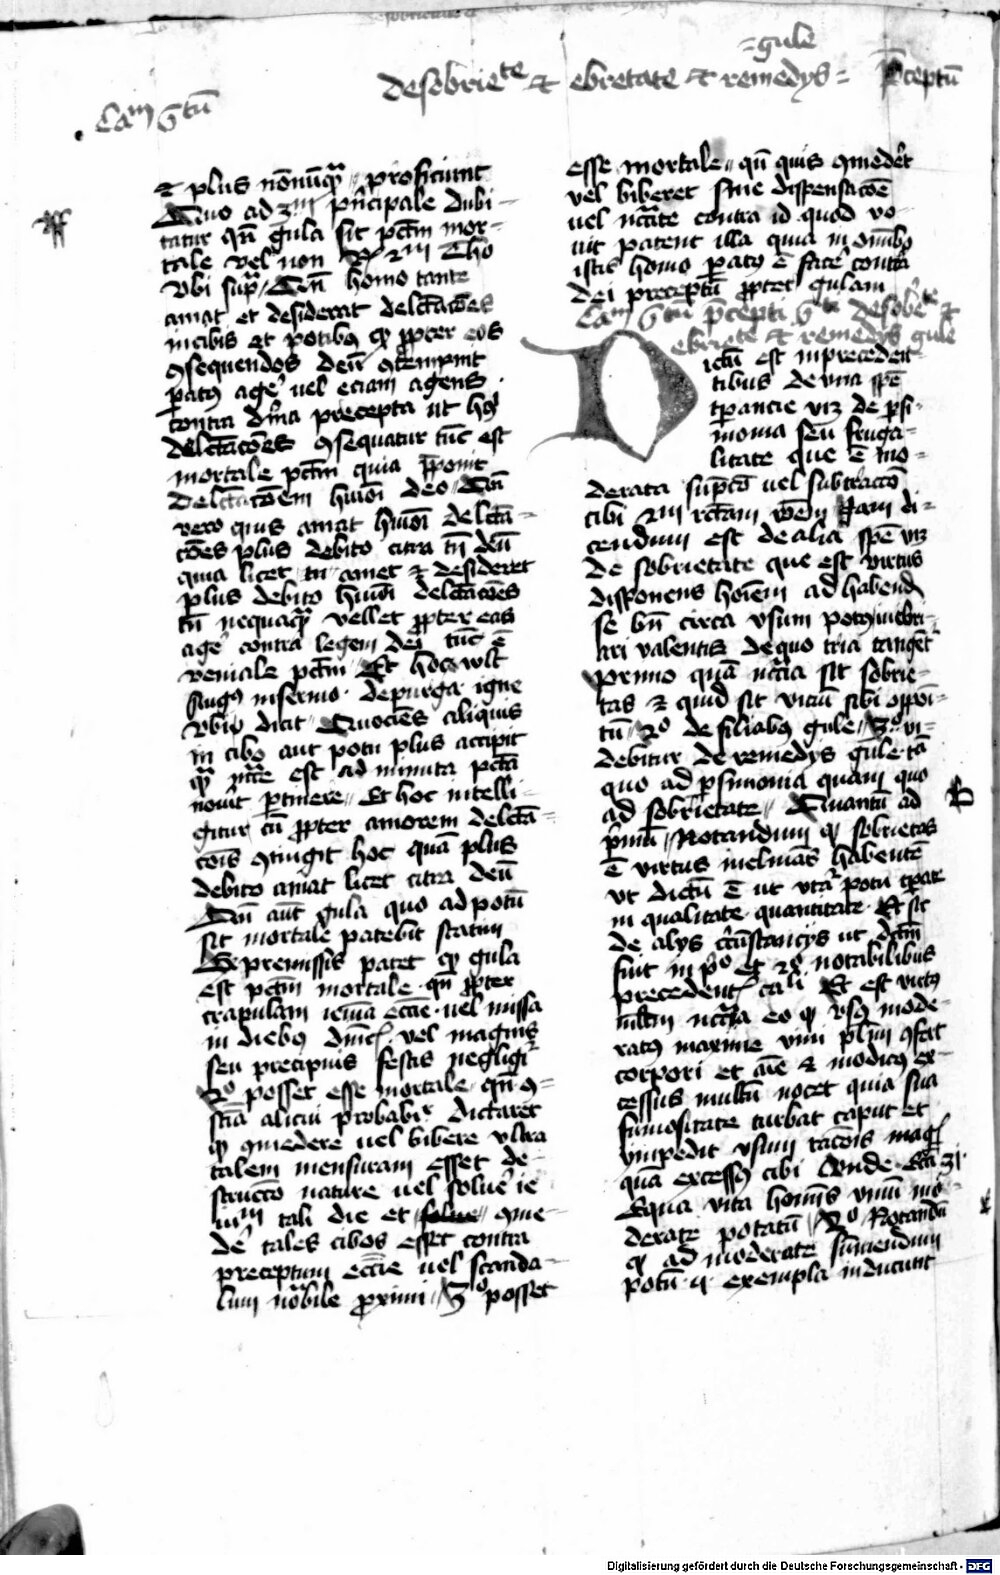 gule
de sobriete et ebretate et remedys preceptum
Cam Gtu
et plus nonnuquam proficiunt
Quo ad 3m principale dubi
tatur qn gula sit pctm mor
tale vel non Rx 2m Tho
vbi supra Qn homo tante
amat et desiderat delctacoes
in cibis et potibus qp propter eos
9sequendos deum 9tempnit
paratus agere vel eciam agens
contra dina precepta ut hmoi
delctacoes 9sequatur tunc est
mortale pctm quia preponit
delctacoem hmoi deo Qn
vero quis amat hmoi delcta
coes plus debito citra tn deu
quia licet tn amet et desideret
plus debito hmoi delctacoes
tn nequaquam vellet propter eas
agere contra legem dei tunc e
veniale pctm Et hoc wlt
Augus in sermo de purga igne
vbi dicit Quociens aliquis
in cibo aut potu plus accipit
quam necesse est ad minuta pcta
noverit pertinere Et hoc intelli
gitur cu propter amorem delcta
cois 9tingit hoc quam plus
debito amat licet citra deu
Qn aut gula quo ad potu
sit mortale patebit statim
Ex premissis patet qp gula
est pctm mortale qn propter
crapulam ieiunia eccie vel missa
in diebus dnicis vel magnis
seu precipuis festis negligit
2o posset esse mortale qn 9
scia alicui probabiliter dictaret
qp 9medere vel bibere vltra
talem mensuram esset de
structo nature vel solvere ie
iuium tali die et 9me
dere tales cibos esset contra
preceptum eccie vel scanda
lum notabile proximi 3o posset
esse mortale qn quis 9mederet
vel biberet sine dispensacoe
vel necessitate contra id quod vo
vit patent illa quia in omnibus
istis homo paratus e facere contra
dei preceptu propter gulam
Cam Gtu precepti de sobriete et
ebriete et remedys gule
Dictu est in precedent
tibus de una spe
tperancie viz de parsi
monia seu fruga
litate que e mo
derata supcio vel subtraccio
cibi 2m rctam roem Jam di
cendum est de alia spe viz
de sobrietate que est virtus
disponens hoiem ad habend
se bn circa vsum potus inebri
ari valentis de quo tria tangentur
primo quam necria sit sobrie
tas et quid sit viciu sibi opposi
tu 2o de filiabus gule 3o vi
debitur de remedys gule ta
quo ad parsimonia quam quo
ad sobrietate Quantu ad
B
primu Notandum qp sobrietas
e virtus inclinans habente
vt dictu e ut vtatur potu tperate
in qualitate quantitate Et sic
de alys circustancys ut dctm
fuit in po et 2o notabilibus
precedentis cali Et est virtus
multum necria eo qp vsus mode
ratus maxime vini plim 9fert
corpori et aie et modicus ex
cessus multu nocet quia sua
fumositate turbat caput et
impedit vsum racois magis
quam excessus cibi Vnde Eccli 31
Equa vita hominis vinu mo
derate potatu 2o Notandu
qp ad moderate sumendum
potu 4 exempla inducunt
Digitalisierung gefördert durch die Deutsche Forschungsgemeinschaft - DFG